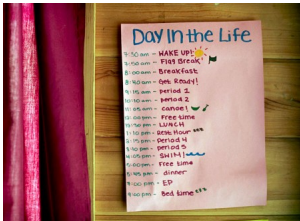 Day In the Life
7:30 am - WAKE UP!
7:50 am - Flag Break!
8:00 am - Breakfast
8:40 am - Get Ready!
9:15 am - Period 1
10:10 am - Period 2
11:05 am - canoe!
12:00 pm - Free time
12:30 pm - LUNCH
1:10 pm - Rest Hour zzz
2:15 pm - Period 4
3:10 pm - Period 5
4:05 pm - SWIM!
5:00 pm - Free time
5:45 pm - dinner
7:00 pm - EP
9:00 pm - Bed time zzz